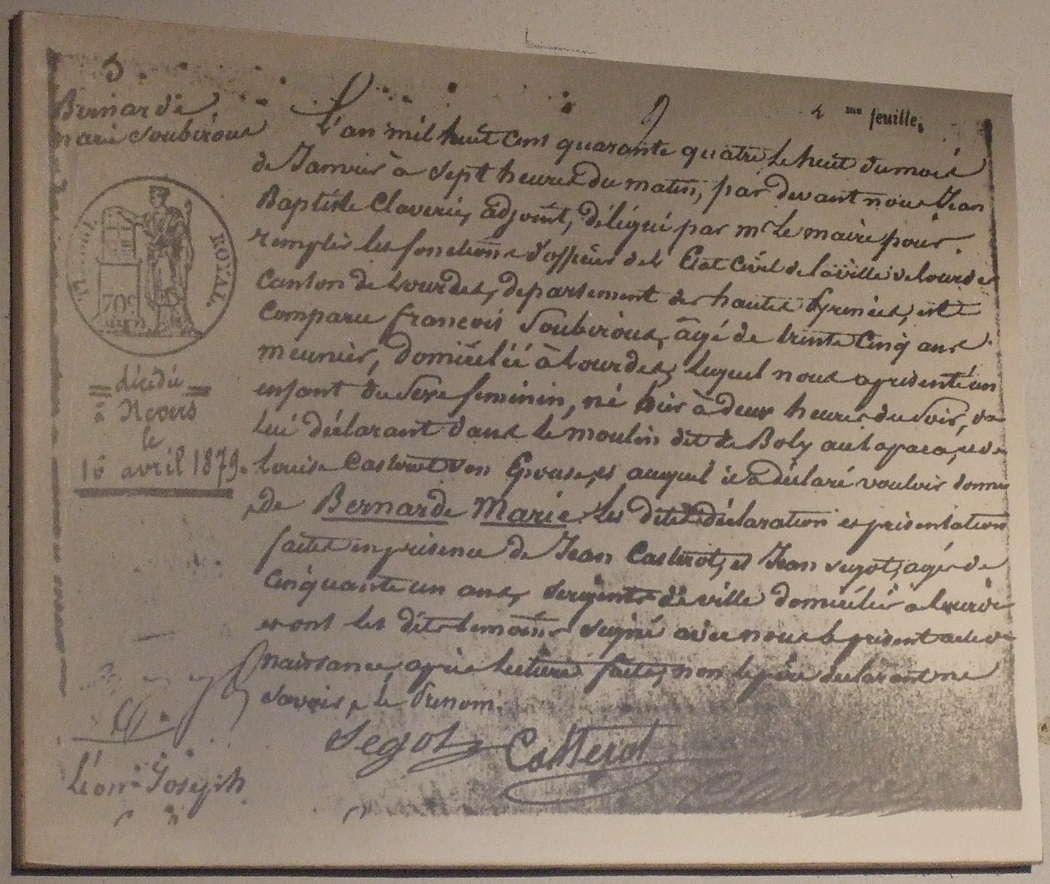 Bernarde
Marie Soubirous
2 me feuille.
L'an mil huit cent quarante quatre le huit du mois
de Janvier à sept heures du matin, par devant nous Jean
Baptiste Claverie, adjoint, délégué par mr le maire pour
remplir les fonctions d'officier de l'Etat Civil de la ville de Lourdes
Canton de Lourdes, département des hautes Pyrénées, est
Comparu françois Soubirous, âgé de trente Cinq ans
meunier, domicilié à Lourdes, lequel nous a présenté un
enfant du Sexe féminin, né hier à deux heures du Soir, de
lui déclarant dans le moulin dit de Boly
Louise Casterot son Epouse, et auquel il a déclaré vouloir donner
de Bernarde Marie. les dites déclaration et présentation
faites en présence de Jean Casterot, et Jean Segot, agés de
Cinquante un ans, Sergents de ville domiciliés à Lourdes
et ont les dits temoins Signé avec nous le présent acte de
naissance, après lecture faite, non le père déclarant ne
Savoir, le Prenom.
TIMBRE ROYAL
70c
décédée
à Nevers
le
16 avril 1879.
Léon Joseph
Segot Casterot
Claverie